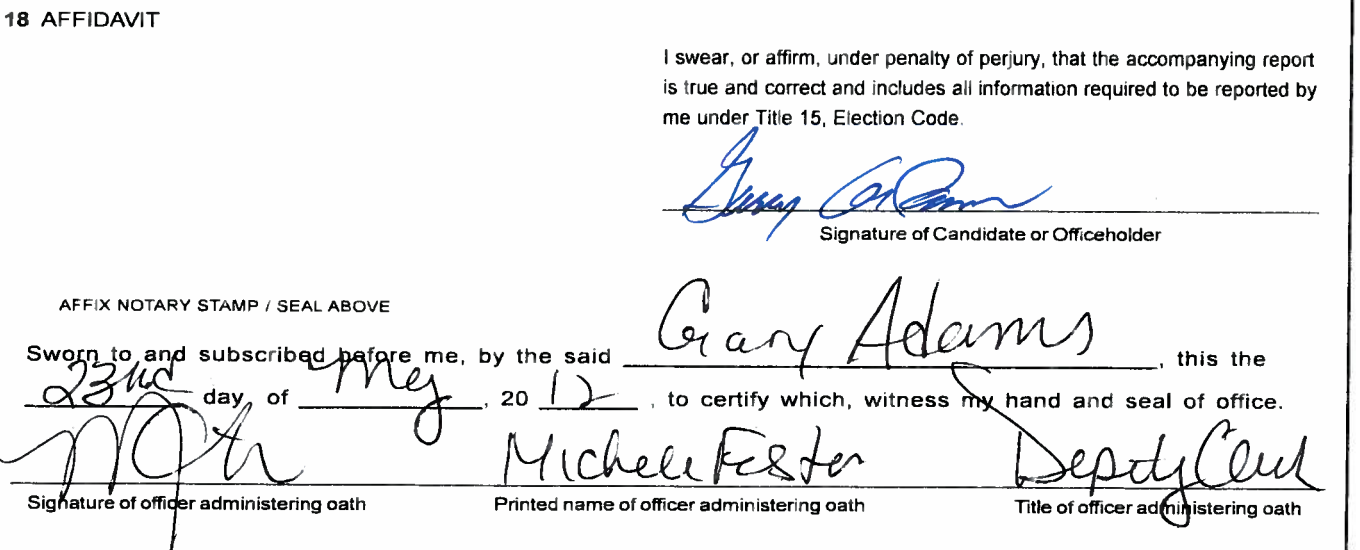 18 AFFIDAVIT
I swear, or affirm, under penalty of perjury, that the accompanying report
is true and correct and includes all information required to be reported by
me under Title 15, Election Code.
Gary Adams
Signature of Candidate or Officeholder
AFFIX NOTARY STAMP / SEAL ABOVE
Sworn to and subscribed before me, by the said Gary Adams, this the
23nd day of May, 2012, to certify which, witness my hand and seal of office.
Michele Deputy Clerk
Signature of officer administering oath Printed name of officer administering oath Title of officer administering oath